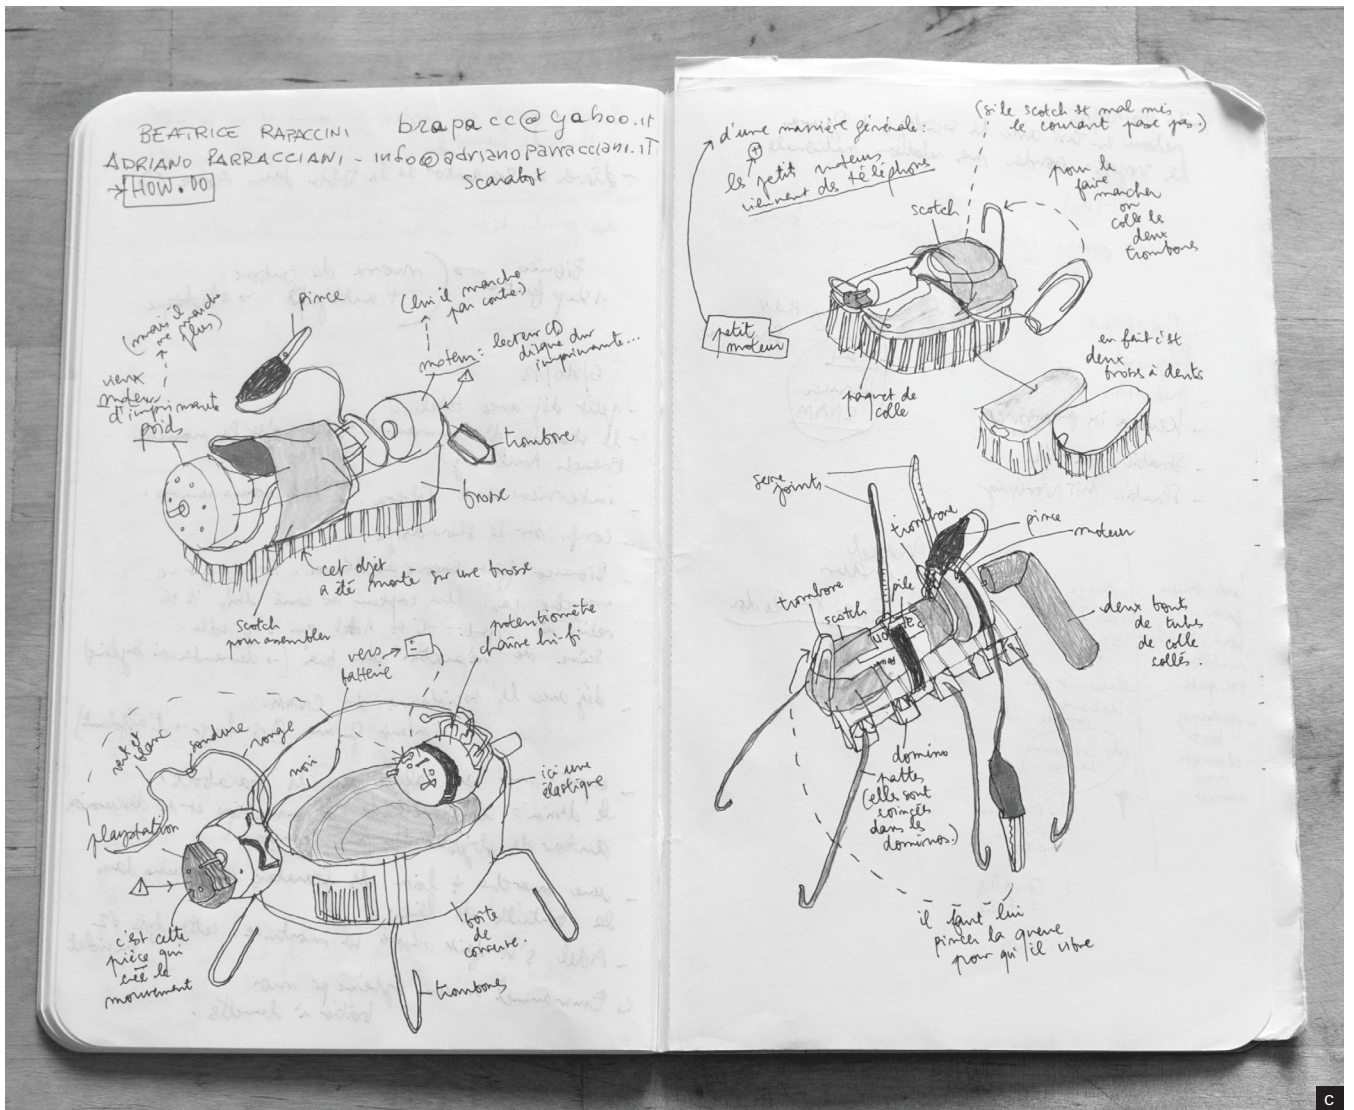 BEATRICE RAPACCINI
brapacc@yahoo.it
ADRIANO PARRACCIANI - info@adrianoparracciani.iT
HOW.DO
scarabot
(mais il
marche
plus)
pince
(lui il marche
par contre)
vieux
moteur
d'imprimante
poids
moteur: lecteur CD
disque dur
imprimante...
trombone
brosse
cet objet
a été monté sur une brosse
scotch
pour assembler
vers
batterie
potentiomètre
chaîne hi-fi
vert et
blanc
soudure
rouge
noir
ici une
élastique
playstation
c'est cette
pièce qui
crée le
mouvement
boîte
de
conserve.
trombones
d'une manière générale:
les petit moteurs
viennent des téléphone
(si le scotch est mal mis
le courant passe pas.)
scotch
pour le
faire
marcher
on
colle les
deux
trombones
petit
moteur
paquet de
colle
en fait c'est
deux
brosse à dents
serre
joints
trombone
pince
moteur
trombone
scotch
pile
deux bouts
de tubes
de colle
collés.
domino
pattes
(elles sont
coincées
dans les
dominos.)
il faut lui
pincer la queue
pour qu'il vibre
C